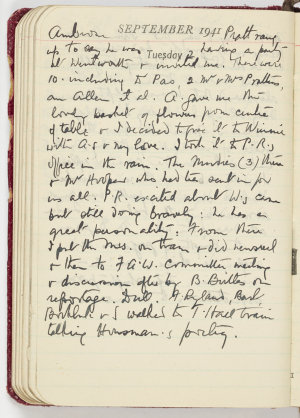 Ambrose Pratt rang
SEPTEMBER 1941
up to say he was having a party
Tuesday 2
at Wentworth & invited me. There were
10. including to Pao, 2 Mr & Mrs Prattens,
an Allen et al. A. gave me the
lovely basket of flowers from centre
of table & I decided to give it to Winnie
with A.'s & my love. I took it to P.R.'s
office in the rain. The Murdies (3) there
& Mr Hooper who had tea sent in for
us all. P.R. excited about W.'s case
but still doing bravely: he has a
great personality. From there
I put the Mss. on train & did newsreel
& then to F.A.W. Committee meeting
& discussion after by B. on
reportage. Dull. Ryland, Bart,
& I walked to T. Hall train
talking Housman's poetry.